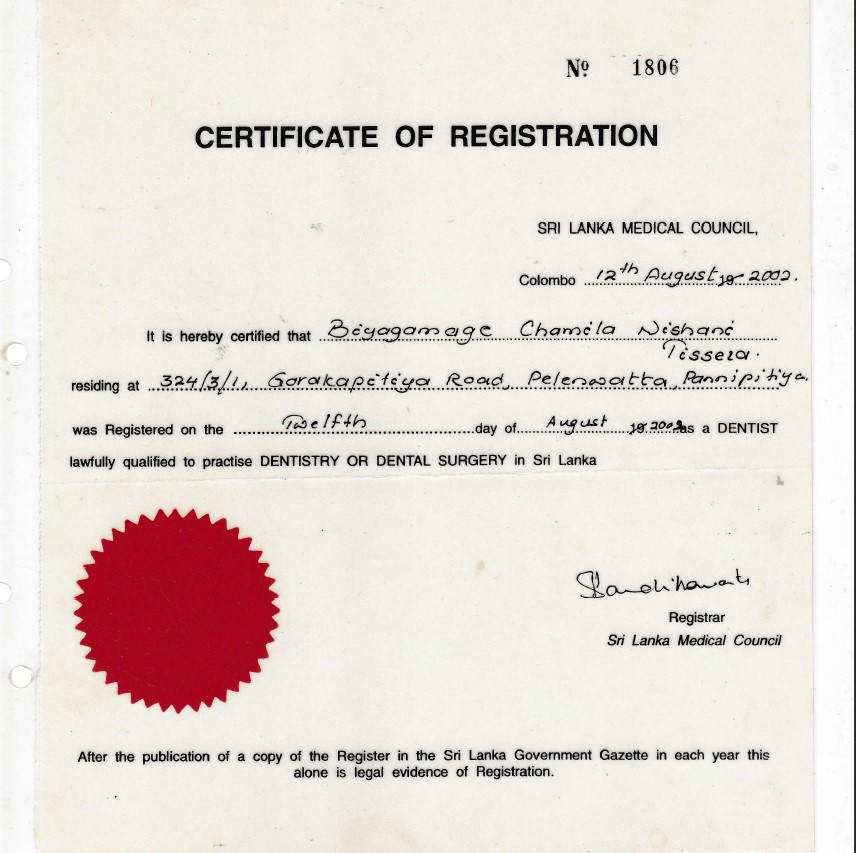 Nº 1806
CERTIFICATE OF REGISTRATION
SRI LANKA MEDICAL COUNCIL,
Colombo 12th August 19 2002.
It is hereby certified that Biyagamage Chamila Nishani
Tissera.
residing at 324/3/1, Gorakapitiya Road, Pelenwatta, Pannipitiya.
was Registered on the Twelfth day of August 19 2002 as a DENTIST
lawfully qualified to practise DENTISTRY OR DENTAL SURGERY in Sri Lanka
Registrar
Sri Lanka Medical Council
After the publication of a copy of the Register in the Sri Lanka Government Gazette in each year this
alone is legal evidence of Registration.